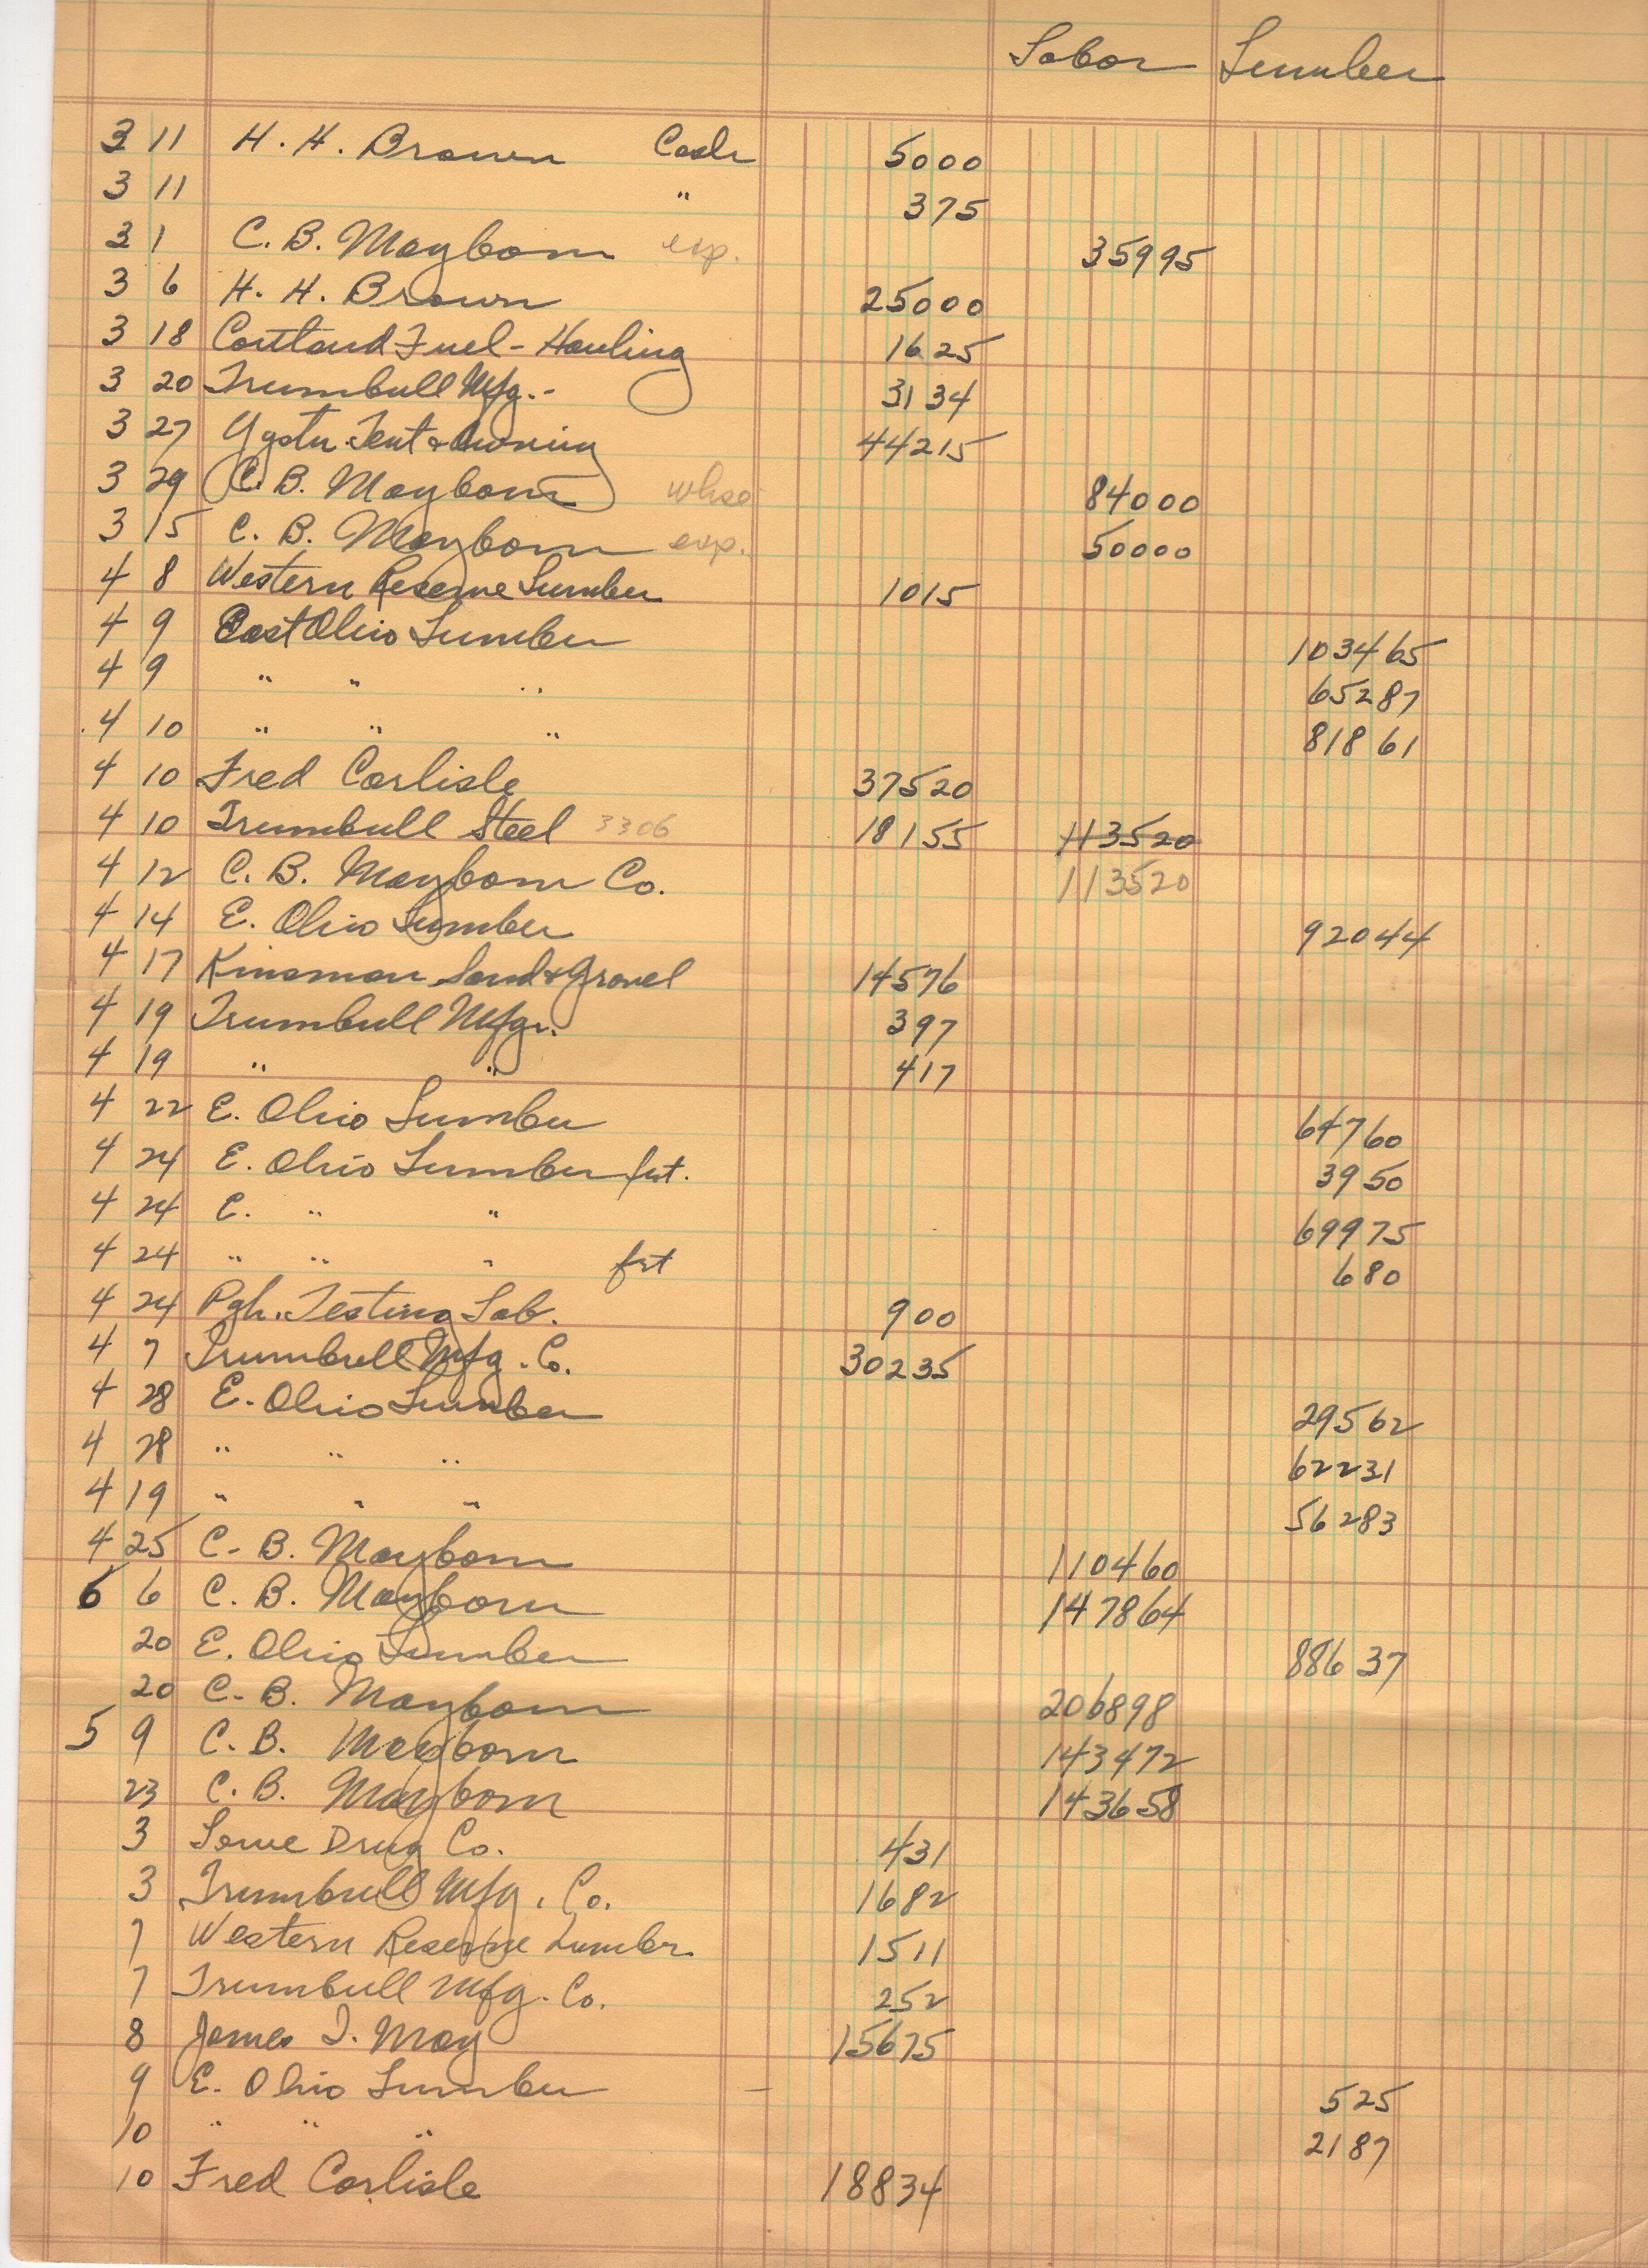 Labor Lumber
3 11 H. H. Brown Cash 5000
3 11 " 375
3 1 C. B. Mayborn exp. 35995
3 6 H. H. Brown 25000
3 18 Cortland Fuel - Hauling 1625
3 20 Trumbull Mfg. - 3134
3 27 Ygstn Tent & Awning 44215
3 29 C. B. Mayborn whse 84000
3 15 C. B. Mayborn exp. 50000
4 8 Western Reserve Lumber 1015
4 9 East Ohio Lumber 103465
4 9 " " " 65287
4 10 " " " 81861
4 10 Fred Carlisle 37520
4 10 Trumbull Steel 3306 18155 113520
4 12 C. B. Mayborn Co. 113520
4 14 E. Ohio Lumber 92044
4 17 Kinsman Sand & Gravel 14576
4 19 Trumbull Mfgr. 397
4 19 " " 417
4 22 E. Ohio Lumber 64760
4 24 E. Ohio Lumber frt. 3950
4 24 E. " " 69975
4 24 " " " frt 680
4 24 Pgh. Testing Lab. 900
4 7 Trumbull Mfg. Co. 30235
4 28 E. Ohio Lumber 29562
4 28 " " " 62231
4 19 " " " 56283
4 25 C. B. Mayborn 110460
6 6 C. B. Mayborn 147864
20 E. Ohio Lumber 88637
20 C. B. Mayborn 206898
5 9 C. B. Mayborn 143472
23 C. B. Mayborn 143658
3 Drug Co. 431
3 Trumbull Mfg. Co. 1682
7 Western Reserve Lumber 1511
7 Trumbull Mfg. Co. 252
8 James I. May 15675
9 E. Ohio Lumber - 525
10 " " " 2187
10 Fred Carlisle 18834